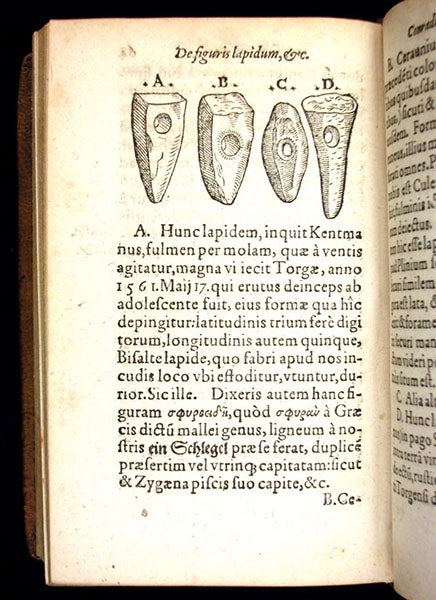 De figuris lapidum, &c.
A. B. C. D.
A. Hunc lapidem, inquit Kentma
nus, fulmen per molam, quæ à ventis
agitatur, magna vi iecit Torgæ, anno
1561. Maij 17. qui erutus deinceps ab
adolescente fuit, eius formæ qua hîc
depingitur: latitudinis trium ferè digi
torum, longitudinis autem quinque,
Bisalte lapide, quo fabri apud nos in-
cudis loco vbi effoditur, vtuntur, du-
rior. Sic ille. Dixeris autem hanc fi-
guram σφυροειδῆ, quòd σφυραν à Græ
cis dictũ mallei genus, ligneum à no-
stris ein Schlegel præ se ferat, duplicẽ
præsertim vel vtrinq; capitatam: sicut
& Zygæna piscis suo capite, &c.
B. Ce-
Conradi
B. Ceraunius
præcedēti colo
ibus quibusda
, sicuti &
idem. Form
neus, illius m
ran omnes. P
st est Cule
fulminis
deiectus.
m hic esse lap
d Plinium f
can similem
præest lata, d
& forame
securi man
m videri p
tus est.
C. Alia alt
D. Hunc l
in pago
terra vir
deiectũ, rustic
e Torgensi c